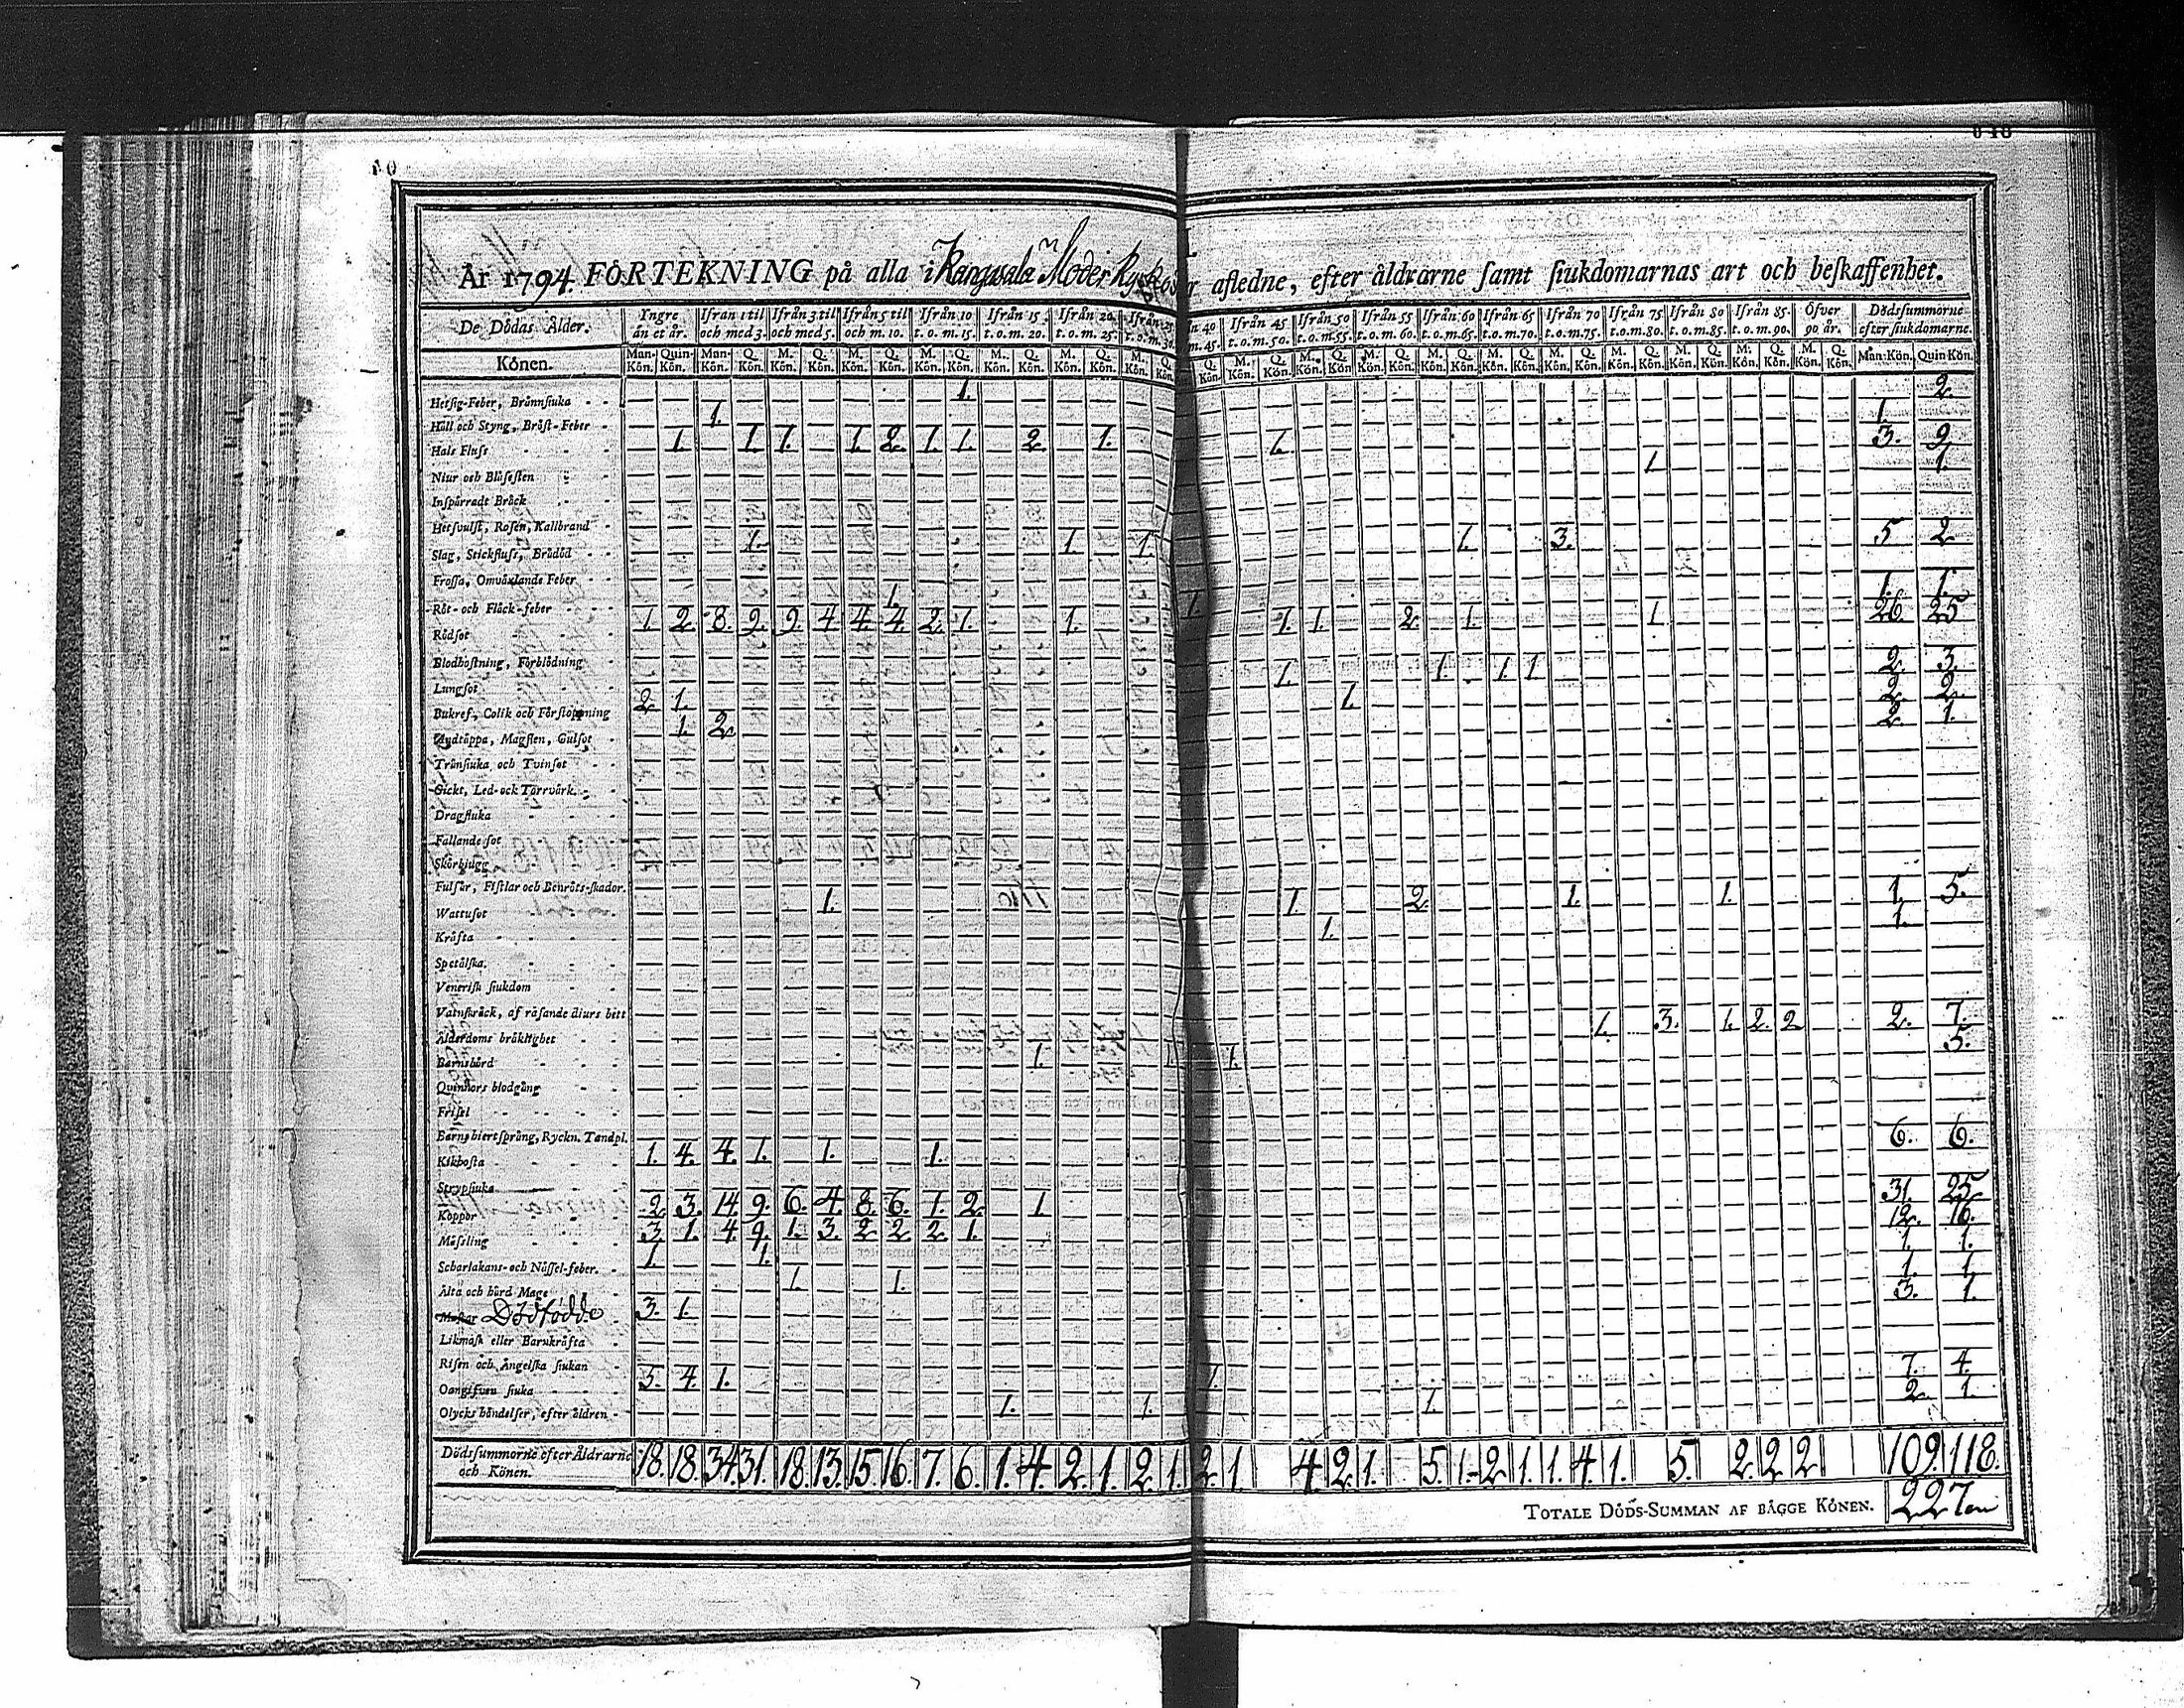 År 1794. FÖRTEKNING på alla i Kangasala Moder Kyrko afledne, efter åldrarne samt siukdomarnas art och beskaffenhet.
De Dödas Ålder. Yngre än et år. Ifrån 1 til och med 3. Ifrån 3. til och med 5. Ifrån 5 til och m. 10. Ifrån 10 t. o. m. 15. Ifrån 15 t. o. m. 20. Ifrån 20 t. o. m. 25. Ifrån 25 t. o. m. 30. n 40 m. 45. Ifrån 45 t. o. m. 50. Ifrån 50 t. o. m. 55. Ifrån 55 t. o. m. 60. Ifrån 60 t. o. m. 65. Ifrån 65 t. o. m. 70. Ifrån 70 t. o. m. 75. Ifrån 75 t. o. m. 80. Ifrån 80 t. o. m. 85. Ifrån 85. t. o. m. 90. Öfver 90 år. Dödssummorne efter siukdomarne.
Könen. Man-Kön. Quin-Kön. Man-Kön. Q. Kön. M. Kön. Q. Kön. M. Kön. Q. Kön. M. Kön. Q. Kön. M. Kön. Q. Kön. M. Kön. Q. Kön. M. Kön. Q. Kön. Q. Kön. M. Kön. Q. Kön. M. Kön. Q. Kön. M. Kön. Q. Kön. M. Kön. Q. Kön. M. Kön. Q. Kön. M. Kön. Q. Kön. M. Kön. Q. Kön. M. Kön. Q. Kön. M. Kön. Q. Kön. M. Kön. Q. Kön. Man-Kön. Quin-Kön.
Hetsig-Feber, Brännsiuka 1. 2.
Håll och Styng, Bröst-Feber 1. 1.
Hals Fluss 1. 1. 1. 1. 2. 1. 1. 2. 1. 1. 3. 9.
Niur och Blåsesten 1. 1.
Inspärradt Bråck
Hetsvulst, Rosen, Kallbrand
Slag, Stickfluss, Brådöd 1. 1. 1. 1. 3. 5 2
Frossa, Omväxlande Feber
Röt- och Fläck-feber 1. 1. 1. 1.
Rödsot 1. 2. 8. 9. 9. 4 4. 4. 2. 1. 1. 1. 1. 2. 1. 1. 26. 25
Blodhostning, Förblödning
Lungsot 1. 1. 1. 1 2. 3.
Bukref, Colik och Förstoppning 2 1. 1. 2. 2.
Modtäppa, Magsten, Gulsot 1. 2. 2. 1.
Trånsiuka och Tvinsot
Gickt, Led- ock Torrvärk.
Dragsiuka
Fallandesot
Skörbiugg
Fulsår, Fistlar och Benröts-skador.
Wattusot 1. 1. 2. 1. 1. 1. 5.
Kräfta 1. 1.
Spetälska.
Venerisk siukdom
Vatuskräck, af råsande diurs bett
Ålderdoms bräklighet 1. 3. 1. 2. 2 2. 7.
Barnsbörd 1. 1. 1. 5.
Quinnors blodgång
Frisel
Barns hiertsprång, Ryckn. Tandpl.
Kikhosta 1. 4. 4. 1. 1. 1. 6. 6.
Strypsiuka
Koppor 2. 3. 14. 9. 6. 4. 8. 6. 1. 2. 1 31. 25
Mässling 3. 1. 4. 9. 1. 3. 2 2. 2. 1. 12. 16.
Scharlakans- och Nässel-feber. 1. 1. 1. 1.
Älta och hård Mage 1. 1. 1. 1.
Maskar Dödfödde 3. 1. 3. 1.
Likmask eller Barnkräfta
Risen och Ängelska siukan
Oangifven siuka 5. 4. 1. 1. 7. 4.
Olycks händelser, efter äldren 1. 1. 1. 2 1.
Dödssummorne efter Åldrarne och Könen. 18. 18. 34. 31. 18. 13. 15. 16. 7. 6. 1. 4. 2. 1. 2. 1. 2. 1 4. 2. 1. 5. 1. 2 1. 1. 4. 1. 5. 2. 2. 2. 109. 118.
TOTALE DÖDS-SUMMAN AF BÅGGE KÖNEN. 227